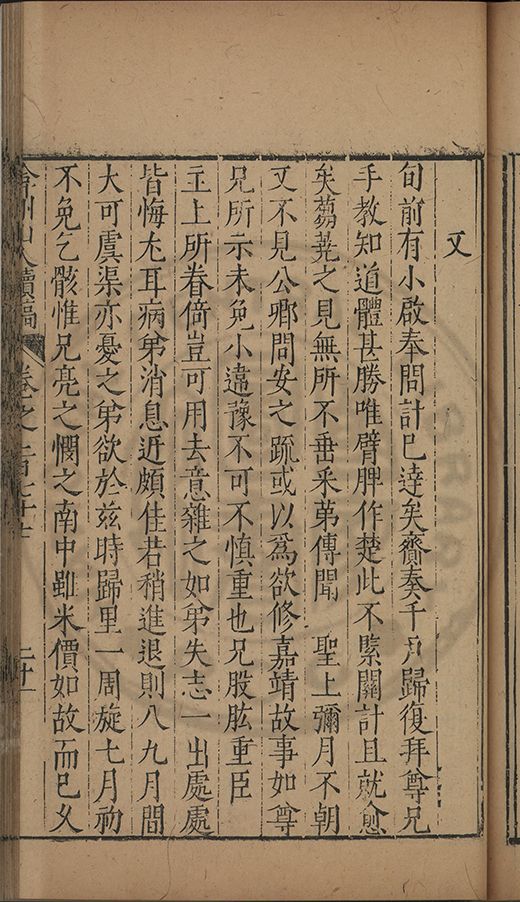 又
旬前有小啟奉問計已達矣齎奏千戶歸復拜尊兄
手教知道體甚勝唯臂脾作楚此不緊關計且就愈
矣芻蕘之見無所不垂采弟傳聞 聖上彌月不朝
又不見公卿問安之疏或以為欲修嘉靖故事如尊
兄所示未免小違豫不可不慎重也兄股肱重臣
主上所眷倚豈可用去意雜之如弟失志一出處處
皆悔尤耳病弟消息近頗佳若稍進退則八九月間
大可虞渠亦憂之弟欲於茲時歸里一周旋七月初
不免乞骸惟兄亮之憫之南中雖米價如故而已久
弇州山人續稿 卷之一百七十七 二十一